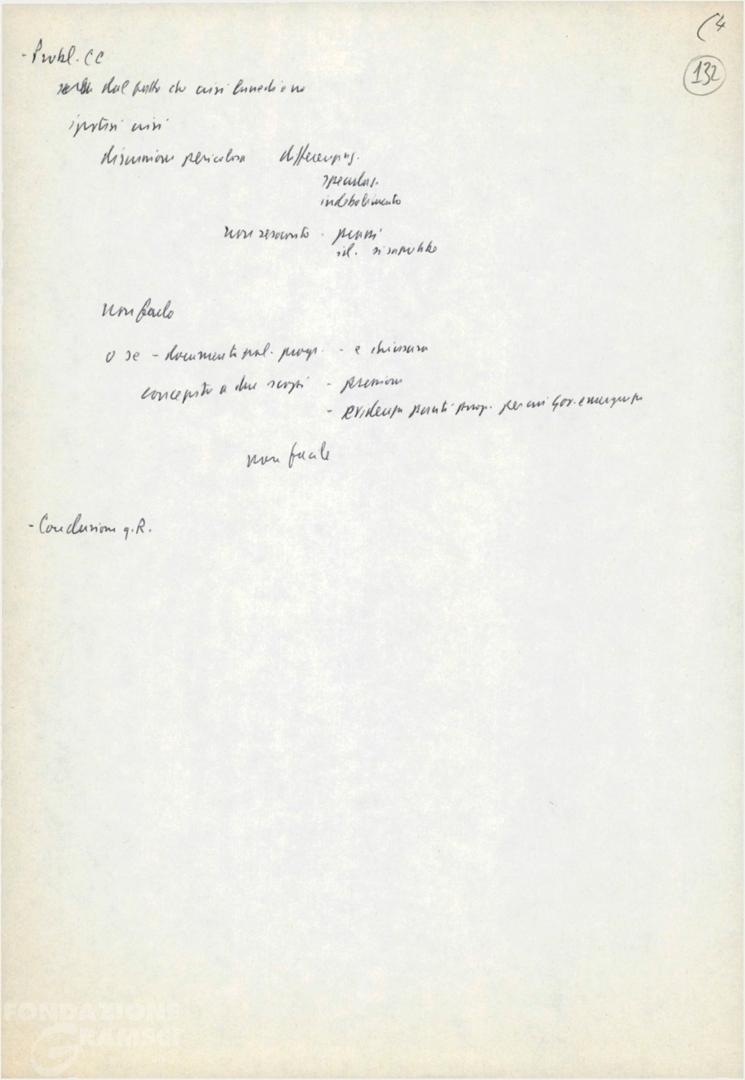 (4
132
- Probl. CC
dal fatto che crisi lunedì o no
ipotesi crisi
discussione pericolosa differenziaz.
speculaz.
indebolimento
non resoconto -
non farlo
o se - documento pol. progr. - e chiusura
concepito a due scopi - pressione
- evidenza punti progr. per cui gov. emergenza
non facile
- Conclusioni q. R.
FONDAZIONE
GRAMSCI